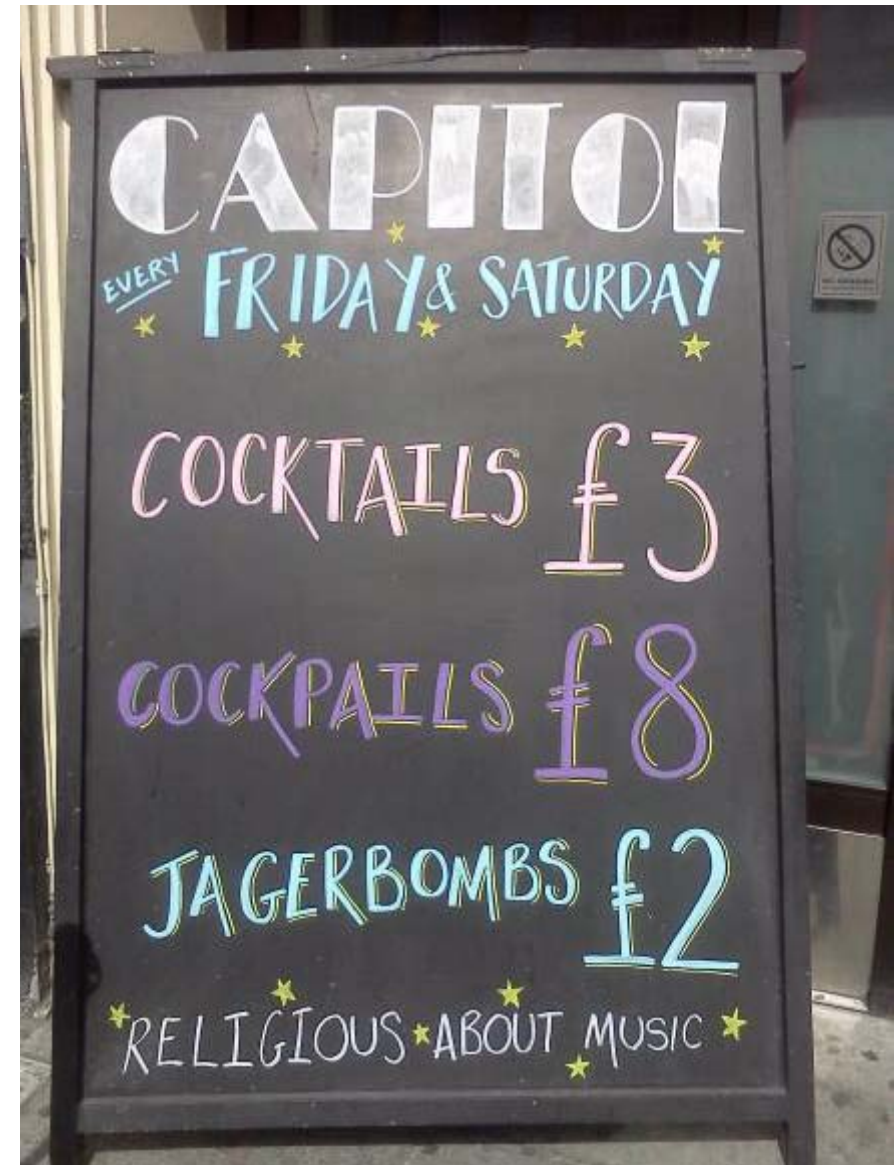 CAPITOL
EVERY FRIDAY & SATURDAY
COCKTAILS £3
COCKPAILS £8
JAGERBOMBS £2
RELIGIOUS ABOUT MUSIC